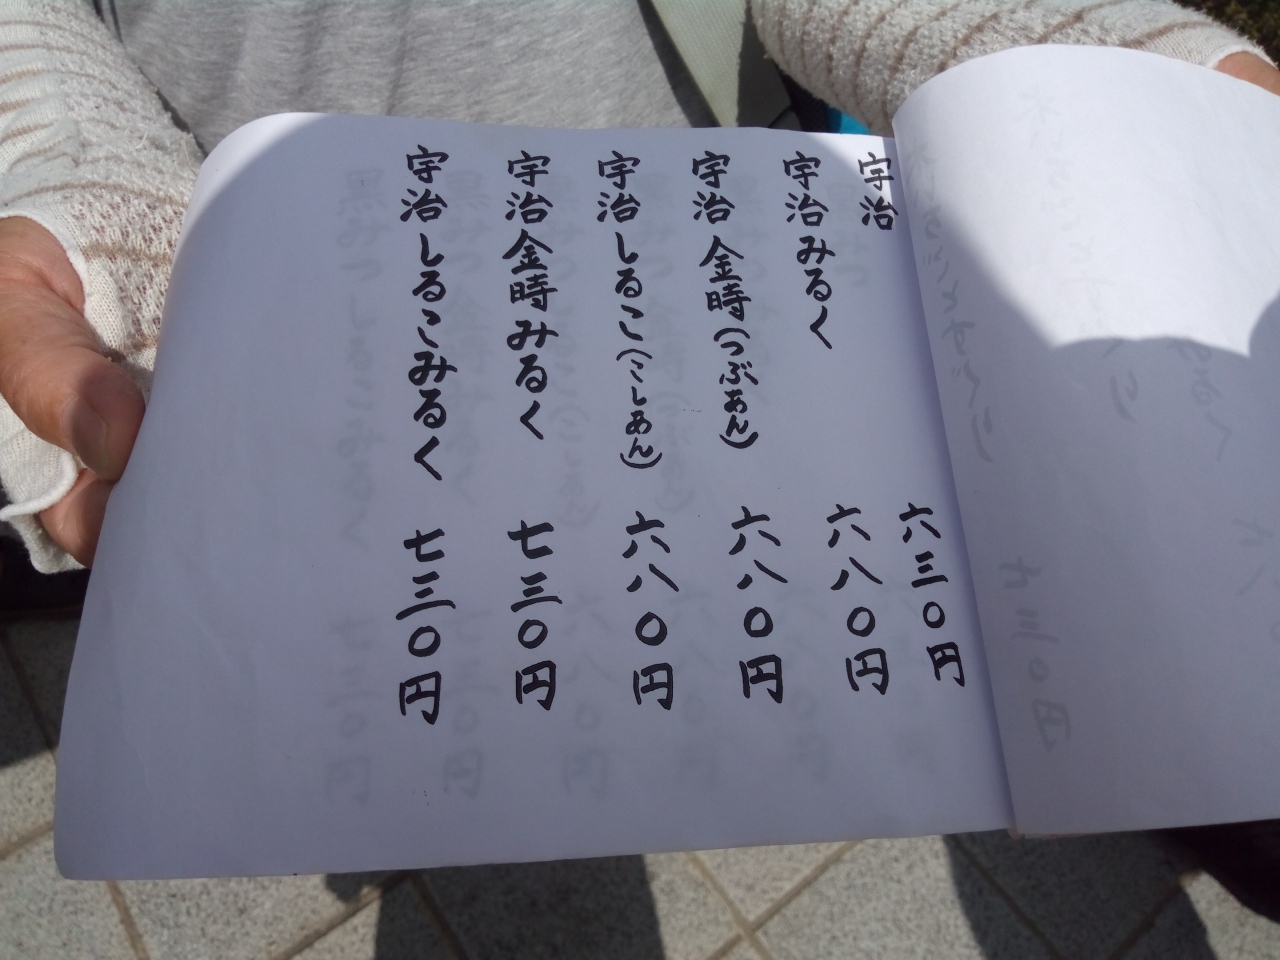 宇治 六三〇円
宇治みるく 六八〇円
宇治金時(つぶあん) 六八〇円
宇治しるこ(こしあん) 六八〇円
宇治金時みるく 七三〇円
宇治しるこみるく 七三〇円